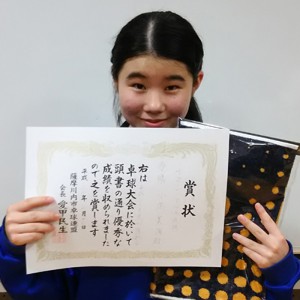 賞状
右は
卓球大会に於いて
頭書の通り優秀な
成績を収められました
ので之を賞します
平成 年 月 日
薩摩川内市卓球連盟
会長 愛甲民生